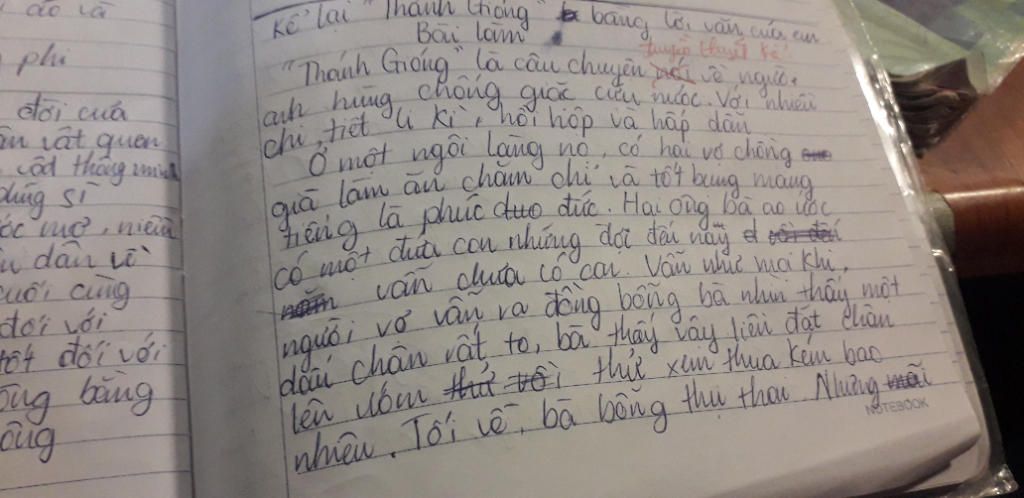 áo và
phi
đời của
ân vật quen
vật thông minh
dũng sĩ
ớc mơ, niềm
dân về
cuối cùng
đối với
tốt đối với
ông bằng
công
Kể lại "Thánh Gióng" bằng lời văn của em
Bài làm
truyền thuyết kể
"Thánh Gióng" là câu chuyện nói về người
anh hùng chống giặc cứu nước. Với nhiều
chi tiết li kì, hồi hộp và hấp dẫn
Ở một ngôi làng nọ, có hai vợ chồng
già làm ăn chăm chỉ và tốt bụng mang
tiếng là phúc đức. Hai ông bà ao ước
có một đứa con nhưng đợi đến nay
vẫn chưa có con. Vẫn như mọi khi,
người vợ vẫn ra đồng bỗng bà nhìn thấy một
dấu chân rất to, bà thấy vậy liền đặt chân
lên ướm thử xem thua kém bao
nhiêu. Tối về, bà bỗng thụ thai. Nhưng
NOTEBOOK